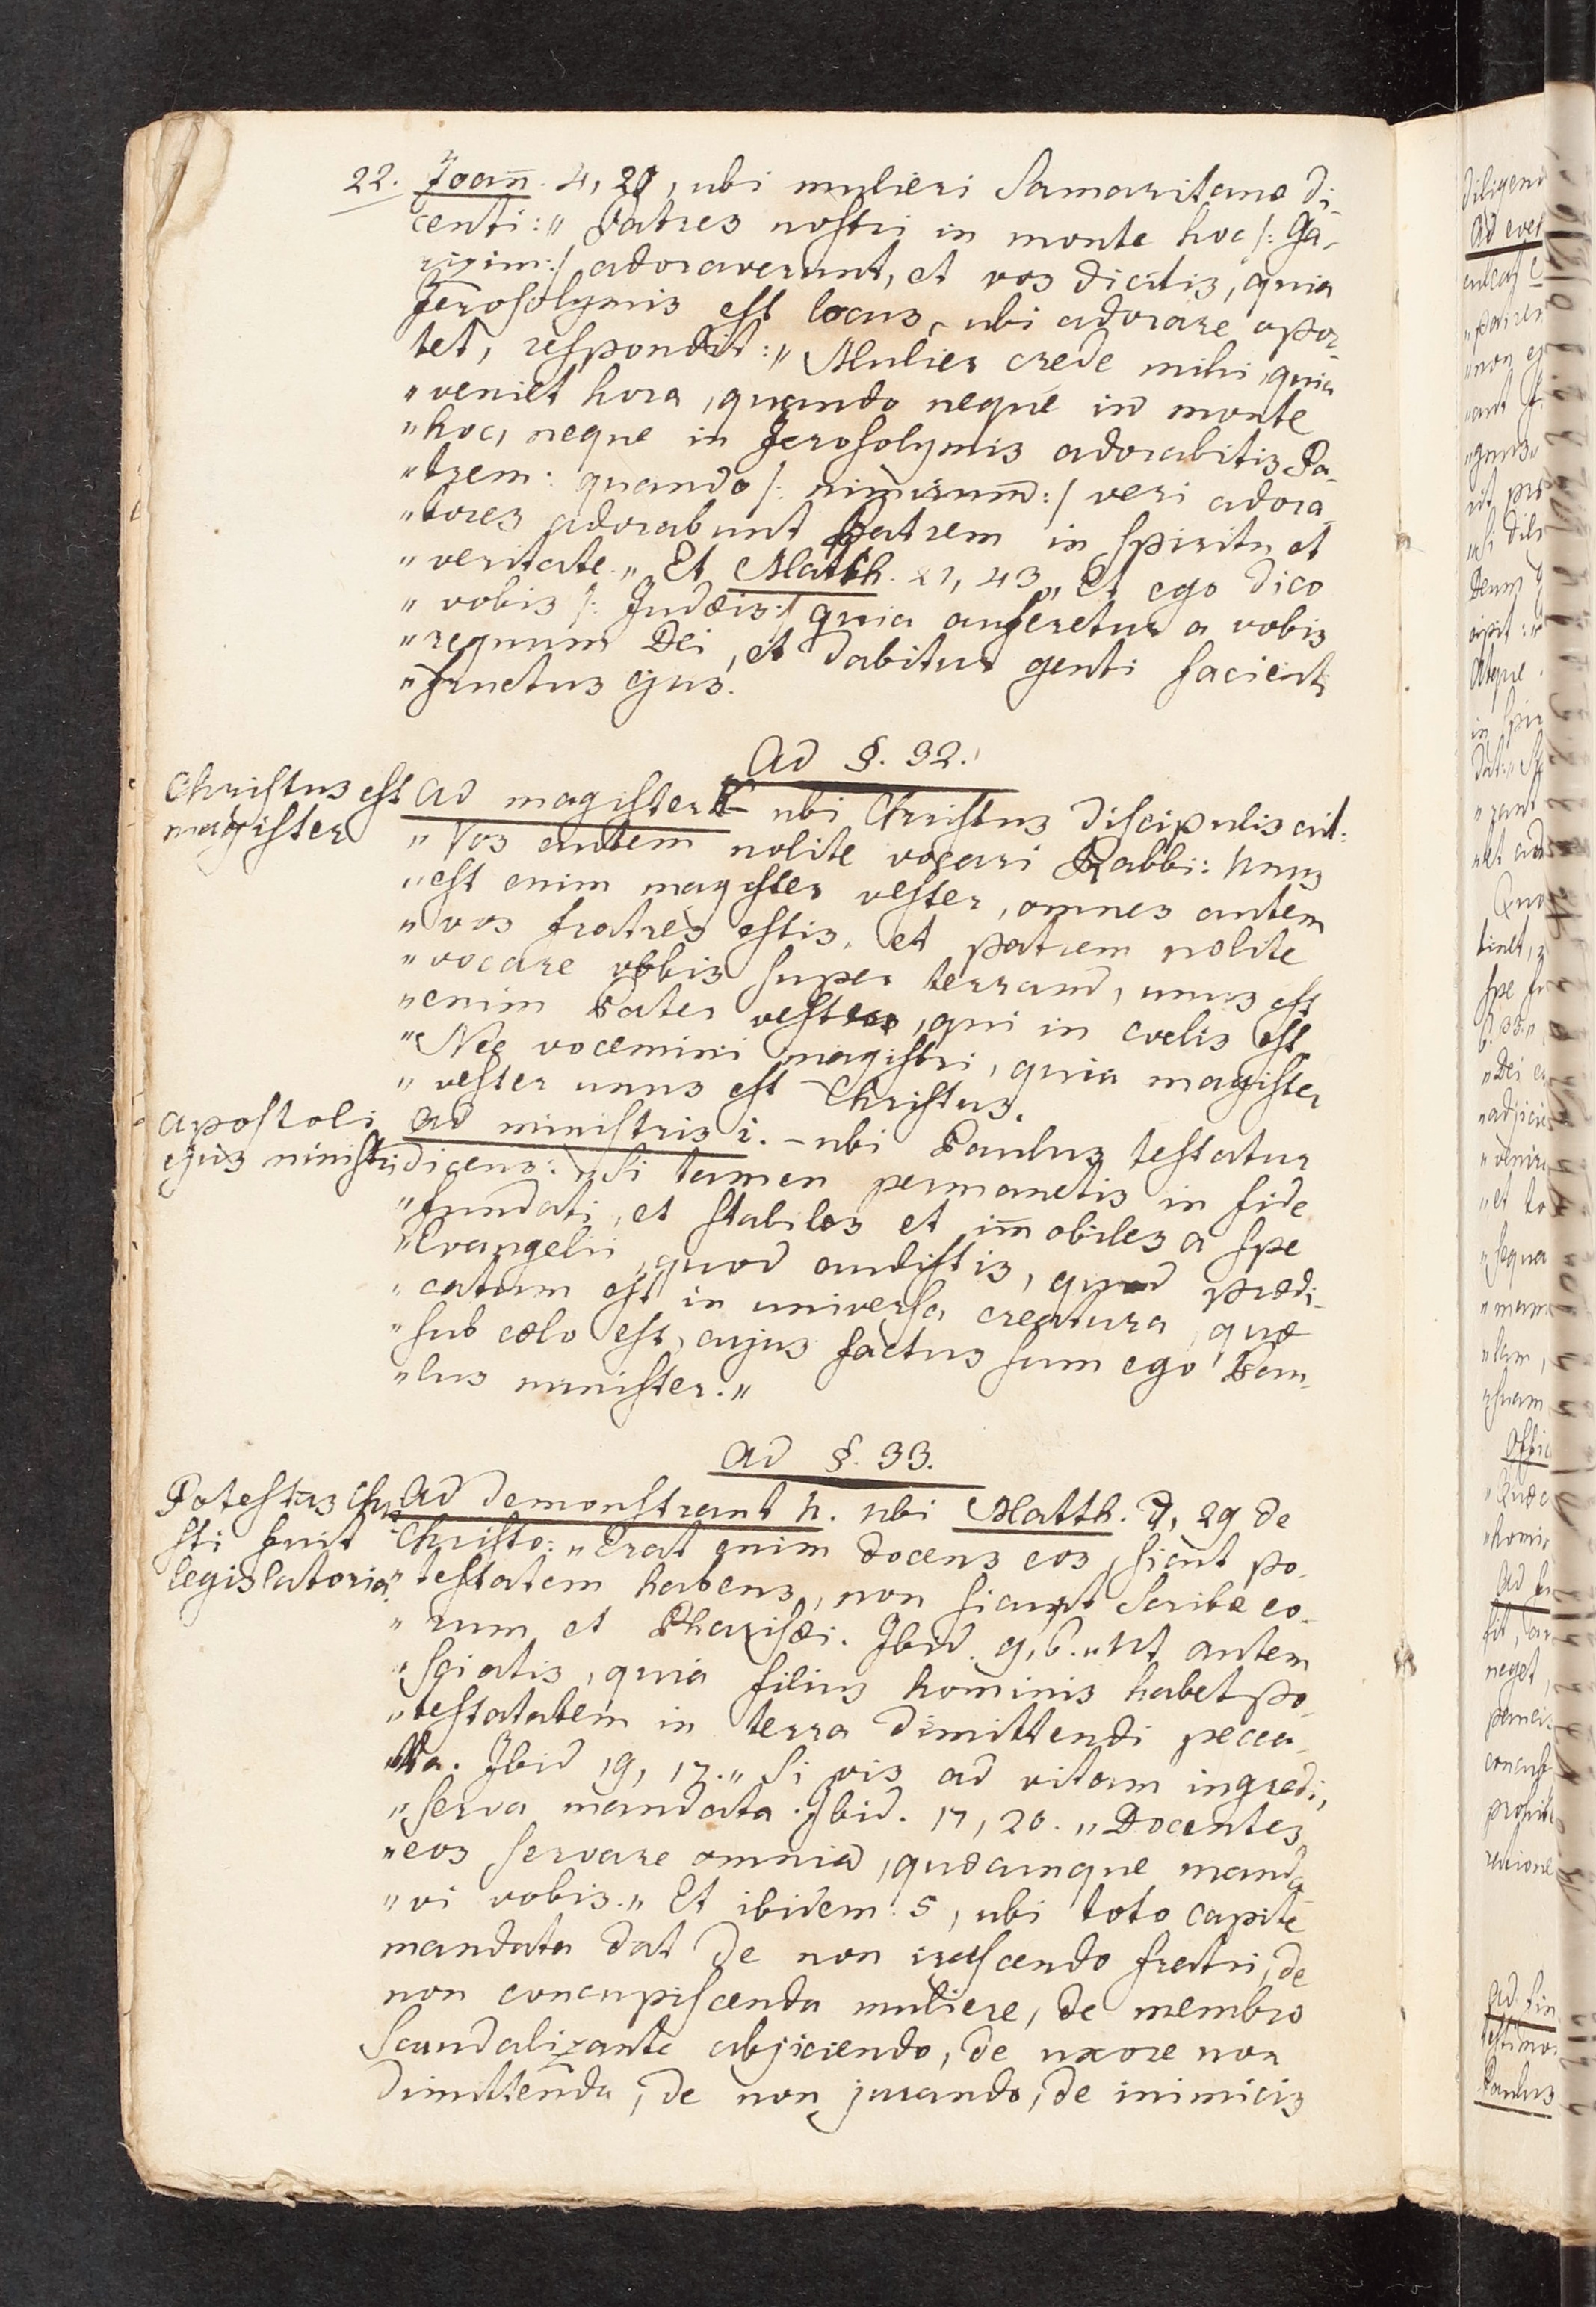 22. Joan̄. 4, 20, ubi mulieri Samaritanæ di-
centi: „ Patres nostri in monte hoc /: Ga-
rizim:/ adoraverunt, et vos dicitis, quia
Jerosolymis est locus, ubi adorare opor-
tet, respondit: „ Mulier crede mihi, quia
„ veniet hora, quando neque in monte
„ hoc, neque in Jerosolymis adorabitis Pa-
„ trem: quando /: nimirum:/ veri adora-
„ tores adorabunt Patrem in spiritu et
„ veritate. „ Et Matth. 21, 43 „ Et ego dico
„ vobis /: Judæis:/ quia auferetur a vobis
„ regnum Dei, et dabitur genti facienti
„ fructus ejus.
Ad §. 32.
Christus est
magister
Ad magister - ubi Christus discipulis ait:
„ Vos autem nolite vocari Rabbi: unus
„ est enim magister vester, omnes autem
„ vos fratres estis. et patrem nolite
„ vocare vobis super terram, unus est
„ enim Pater vester, qui in coelis est.
„ Nec vocemini magistri, quia magister
„ vester unus est Christus.
Apostoli
ejus ministri
Ad ministris i. - ubi Paulus testatur
dicens: „ Si tamen permanetis in fide
„ fundati, et stabiles et im̄obiles a spe
„ Evangelii, quod audistis, quod prædi-
„ catum est in universa creatura, quæ
„ sub cælo est, cujus factus sum ego Pau-
„ lus minister. „
Ad §. 33.
Potestas Chri-
sti fuit
legislatoria.
Ad demonstrant h. ubi Matth. 7, 29 de
Christo: „ Erat enim docens eos, sicut po-
„ testatem habens, non sicut Scribæ eo-
„ rum et Pharisæi. Ibid. 9, 6. „ Ut autem
„ sciatis, quia filius hominis habet po-
„ testatem in terra dimittendi pecca-
ta. Ibid 19, 17. „ Si vis ad vitam ingredi,
„ serva mandata. Ibid. 17, 20. „ Docentes
„ eos servare omnia, quæcunque manda-
„ vi vobis. „ Et ibidem: 5, ubi toto capite
mandata dat de non irascendo fratri, de
non concupiscenda muliere, de membro
Scandalizante abjiciendo, de uxore non
dimittenda, de non jurando, de inimicis